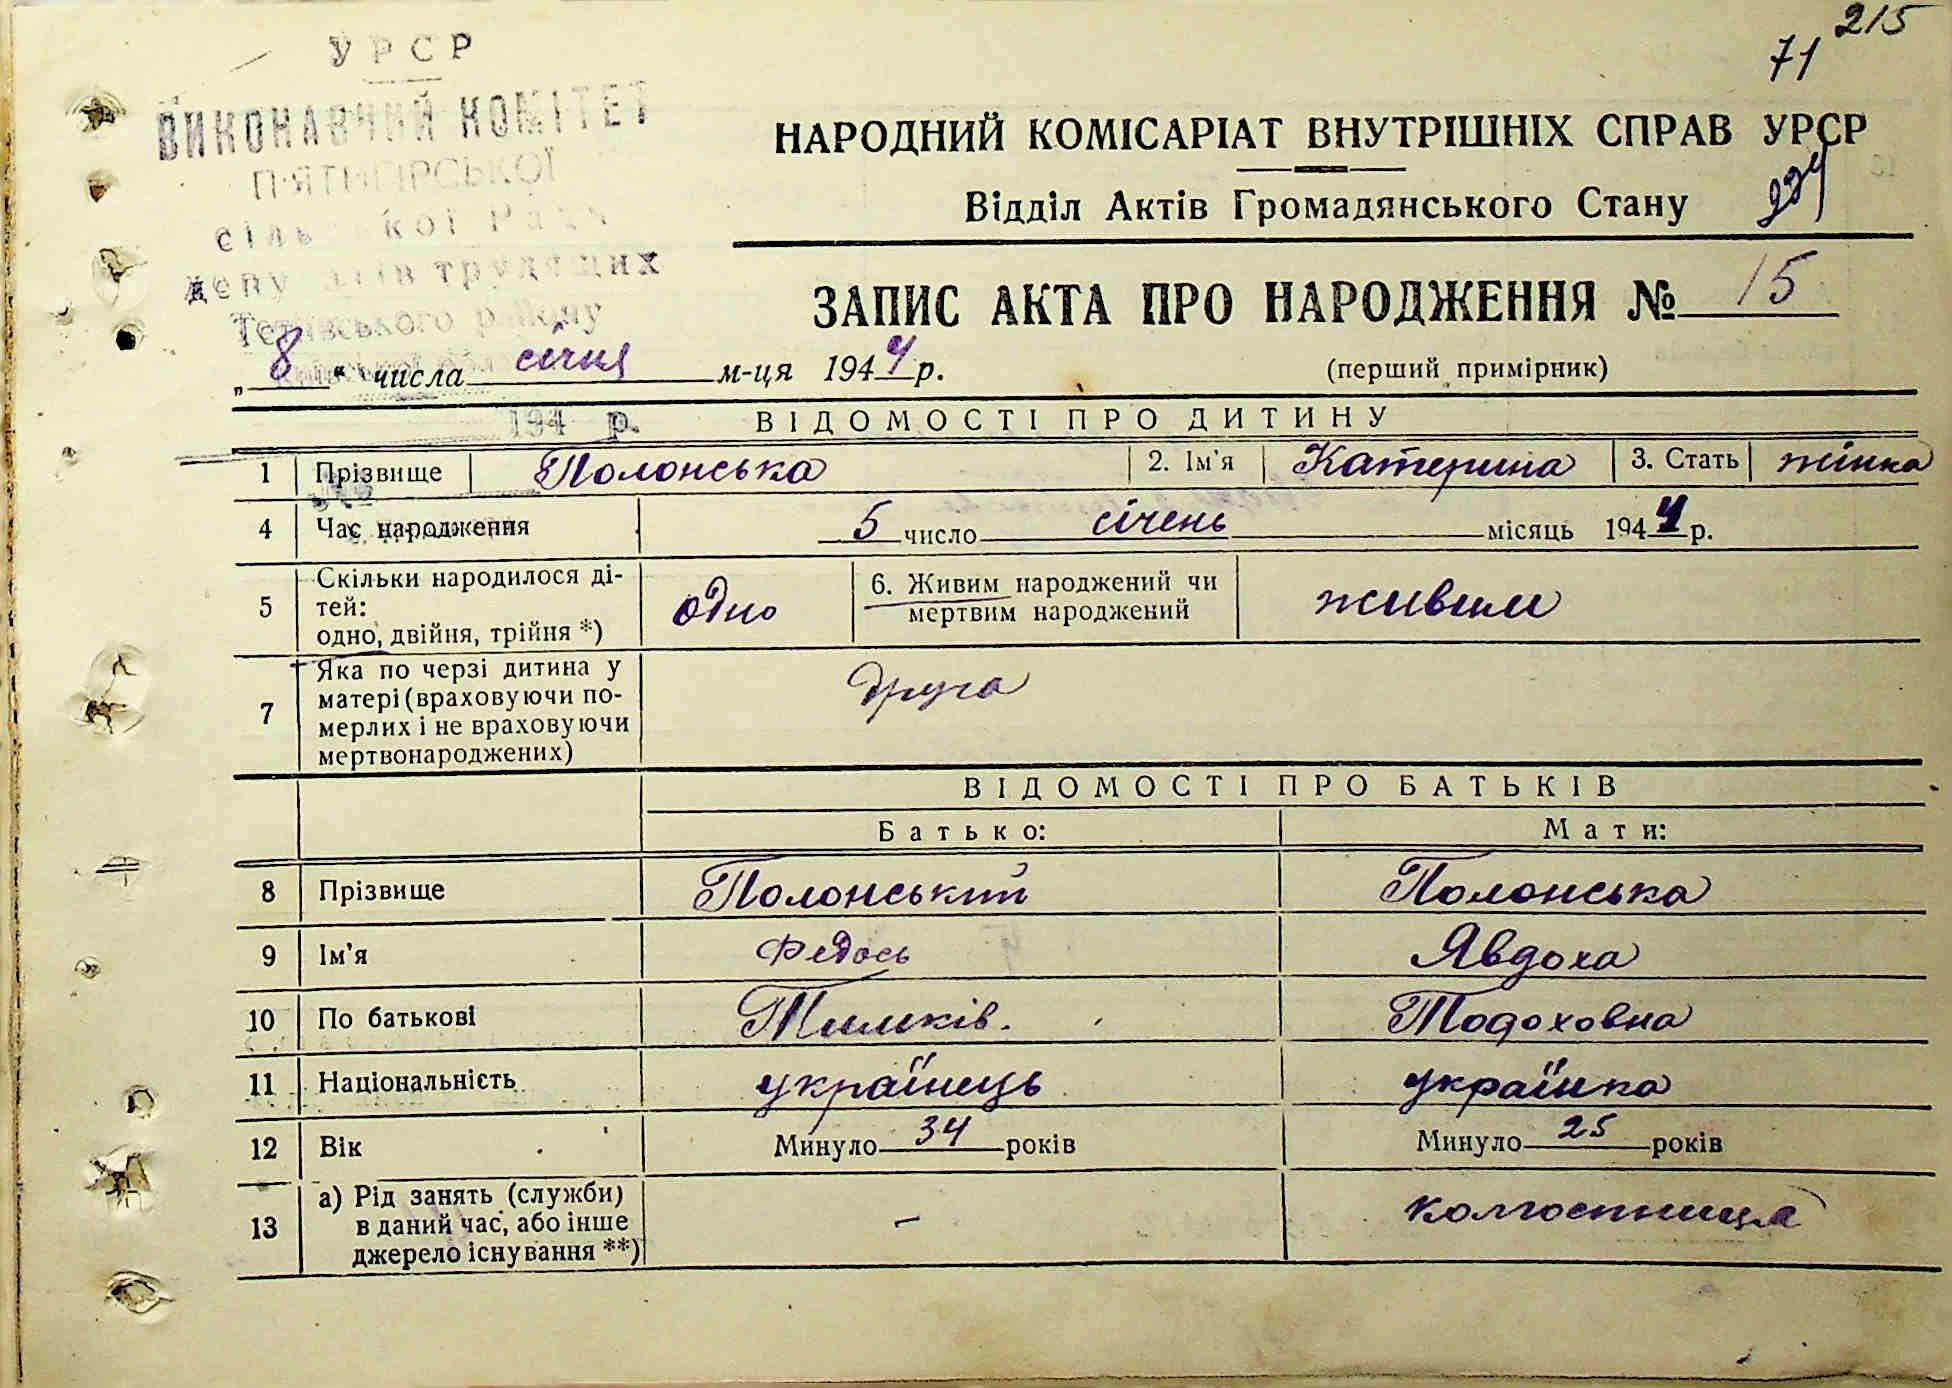 215
71
УРСР
ВИКОНАВЧИЙ КОМІТЕТ
П'ЯТИГІРСЬКОЇ
сільської Ради
депутатів трудящих
Тетіївського району
Київської обл
194 р.
НАРОДНИЙ КОМІСАРІАТ ВНУТРІШНІХ СПРАВ УРСР
Відділ Актів Громадянського Стану
224
ЗАПИС АКТА ПРО НАРОДЖЕННЯ № 15
„8“ числа січня м-ця 1944 р.
(перший примірник)
ВІДОМОСТІ ПРО ДИТИНУ
1 Прізвище Полонська 2. Ім'я Катерина 3. Стать жінка
4 Час народження 5 число січень місяць 1944 р.
5 Скільки народилося ді-
тей:
одно, двійня, трійня *) одно 6. Живим народжений чи
мертвим народжений живим
7 Яка по черзі дитина у
матері (враховуючи по-
мерлих і не враховуючи
мертвонароджених) друга
ВІДОМОСТІ ПРО БАТЬКІВ
Батько: Мати:
8 Прізвище Полонський Полонська
9 Ім'я Федось Явдоха
10 По батькові Тимків. Тодоховна
11 Національність українець українка
12 Вік Минуло 34 років Минуло 25 років
13 а) Рід занять (служби)
в даний час, або інше
джерело існування **) – колгоспниця